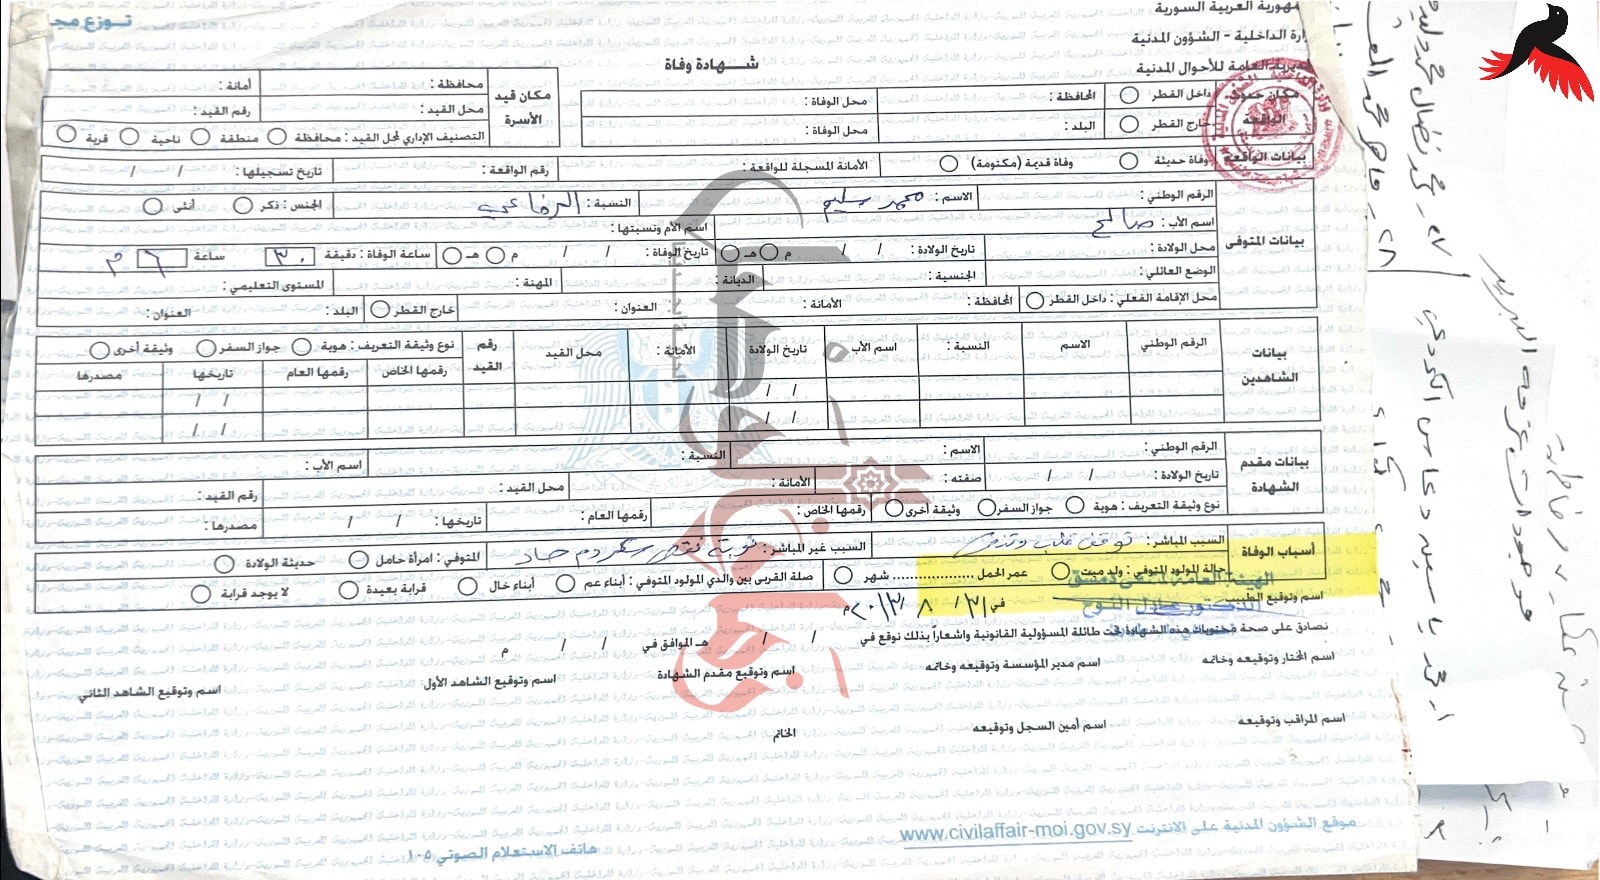 توزع مجـ
ـمهورية العربية السورية
ـزارة الداخلية - الشؤون المدنية
ـديرية العامة للأحوال المدنية
شـــهادة وفاة
مكان حدوث الواقعة
داخل القطر
المحافظة :
محل الوفاة :
خارج القطر
البلد :
محل الوفاة :
مكان قيد الأسرة
محافظة :
أمانة :
محل القيد :
رقم القيد :
التصنيف الإداري لمحل القيد : محافظة منطقة ناحية قرية
بيانات الواقعة
وفاة حديثة وفاة قديمة (مكتومة)
الأمانة المسجلة للواقعة :
رقم الواقعة :
تاريخ تسجيلها : / /
بيانات المتوفى
الرقم الوطني :
الاسم : محمد سليم
النسبة : الرفاعي
الجنس : ذكر أنثى
اسم الأب : صالح
اسم الأم ونسبتها :
محل الولادة :
تاريخ الولادة : / / م هـ
تاريخ الوفاة : / / م هـ
ساعة الوفاة : دقيقة ٣٠ ساعة ٦ م
الوضع العائلي :
الجنسية :
الديانة :
المهنة :
المستوى التعليمي :
محل الإقامة الفعلي : داخل القطر
المحافظة :
الأمانة :
العنوان :
خارج القطر
البلد :
العنوان :
بيانات الشاهدين
الرقم الوطني
الاسم
النسبة :
اسم الأب
تاريخ الولادة
الأمانة :
محل القيد
رقم القيد
نوع وثيقة التعريف : هوية جواز السفر وثيقة أخرى
رقمها الخاص
رقمها العام
تاريخها
مصدرها
/ /
/ /
/ /
/ /
بيانات مقدم الشهادة
الرقم الوطني :
الاسم :
النسبة :
اسم الأب :
تاريخ الولادة : / /
صفته :
الأمانة :
محل القيد :
رقم القيد :
نوع وثيقة التعريف : هوية جواز السفر وثيقة أخرى
رقمها الخاص :
رقمها العام :
تاريخها : / /
مصدرها :
أسباب الوفاة
السبب المباشر : توقف قلب وتنفس
السبب غير المباشر : نوبة نقص سكر دم حاد
المتوفى : امرأة حامل حديثة الولادة
حالة المولود المتوفى : ولد ميت
عمر الحمل .................... شهر
صلة القربى بين والدي المولود المتوفى : أبناء عم أبناء خال قرابة بعيدة لا يوجد قرابة
اسم وتوقيع الطبيب
الهيئة العامة لمشفى دمشق
الدكتور
في ٣١ / ٨ /٢٠١٣ م
نصادق على صحة محتويات هذه الشهادة تحت طائلة المسؤولية القانونية واشعاراً بذلك نوقع في / / هـ الموافق في / / م
اسم المختار وتوقيعه وخاتمه
اسم مدير المؤسسة وتوقيعه وخاتمه
اسم وتوقيع مقدم الشهادة
اسم وتوقيع الشاهد الأول
اسم وتوقيع الشاهد الثاني
اسم المراقب وتوقيعه
اسم أمين السجل وتوقيعه
الخاتم
موقع الشؤون المدنية على الانترنت www.civilaffair-moi.gov.sy
هاتف الاستعلام الصوتي ١٠٥